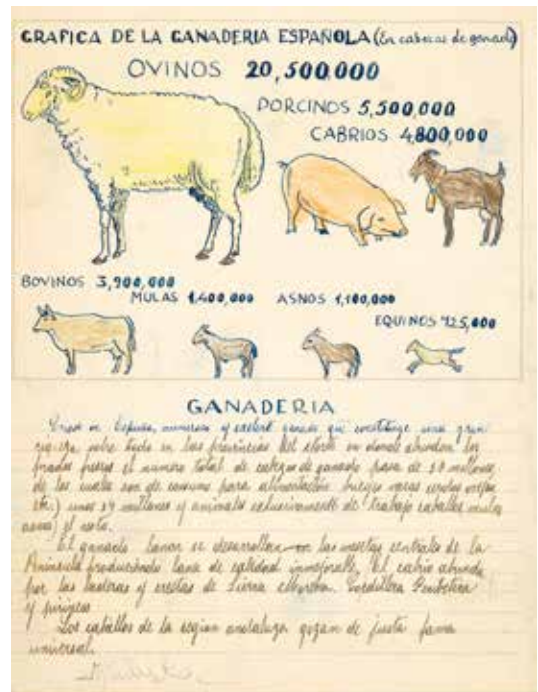 GRAFICA DE LA GANADERIA ESPAÑOLA (En cabezas de ganado)
OVINOS 20,500,000
PORCINOS 5,500,000
CABRIOS 4,800,000
BOVINOS 3,900,000
MULAS 1,400,000 ASNOS 1,100,000
EQUINOS 725,000
GANADERIA
en España, numeroso y excelent ganado que constituye una gran
sobre todo en las provincias del norte en donde abundan los
prados frescos el numero total de cabezas de ganado pasa de millones
de los cuales son de consumo para alimentación bueyes vacas cerdos ovejas
etc.) unos millones y animales exclusivamente de trabajo caballos mulas
asnos) el resto.
El ganado lanar se desarrolla en las mesetas centrales de la
Peninsula produciendo lana de calidad inmejorable, El cabrio abunda
por las laderas y crestas de Sierra Cordillera Penibetica
y pirineos
Los caballos de la region andaluza gozan de justa fama
universal.